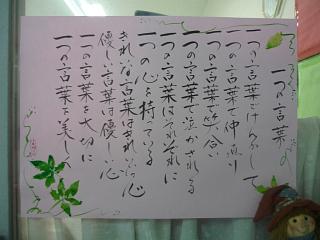 一つの言葉
一つの言葉でけんかして
一つの言葉で仲直り
一つの言葉で笑い合い
一つの言葉で泣かされる
一つの言葉はそれぞれに
一つの心を持っている
きれいな言葉はきれいな心
優しい言葉は優しい心
一つの言葉を大切に
一つの言葉を美しく